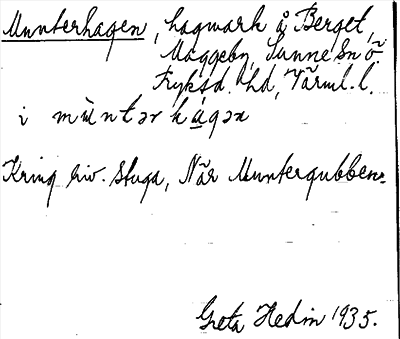 Munterhagen, hagmark å Berget,
Maggeby, Sunne sn Ö.
Fryksd. hd, Värml. l.
i mùntər hágən
Kring riv. stuga, När Muntergubben.
Greta Hedin 1935.